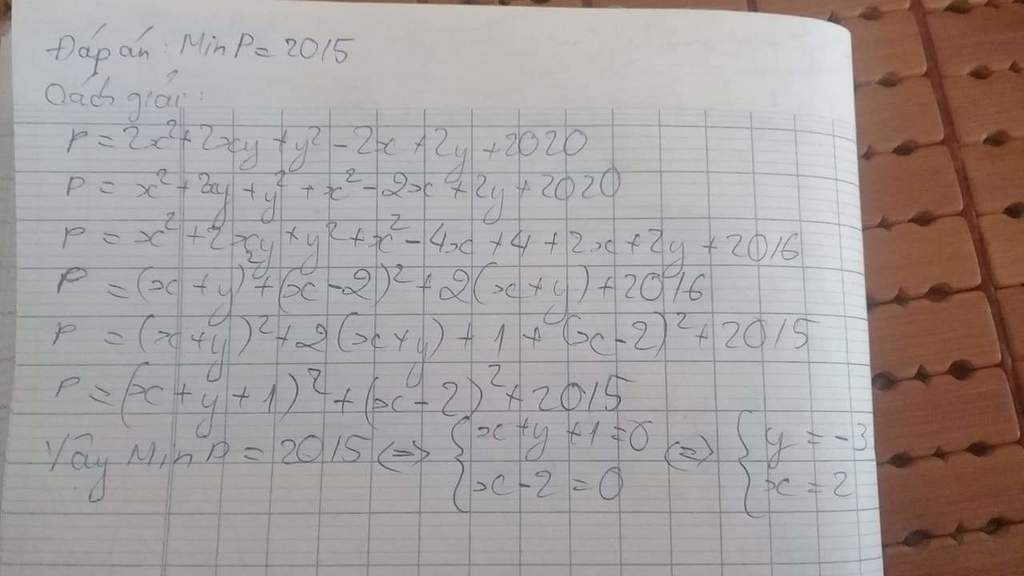 Đáp án: Min P = 2015
Cách giải:
P = 2x² + 2xy + y² - 2x + 2y + 2020
P = x² + 2xy + y² + x² - 2x + 2y + 2020
P = x² + 2xy + y² + x² - 4x + 4 + 2x + 2y + 2016
P = (x + y)² + (x - 2)² + 2(x + y) + 2016
P = (x + y)² + 2(x + y) + 1 + (x - 2)² + 2015
P = (x + y + 1)² + (x - 2)² + 2015
Vậy Min P = 2015 <=> { x + y + 1 = 0 <=> { y = -3
x - 2 = 0 x = 2